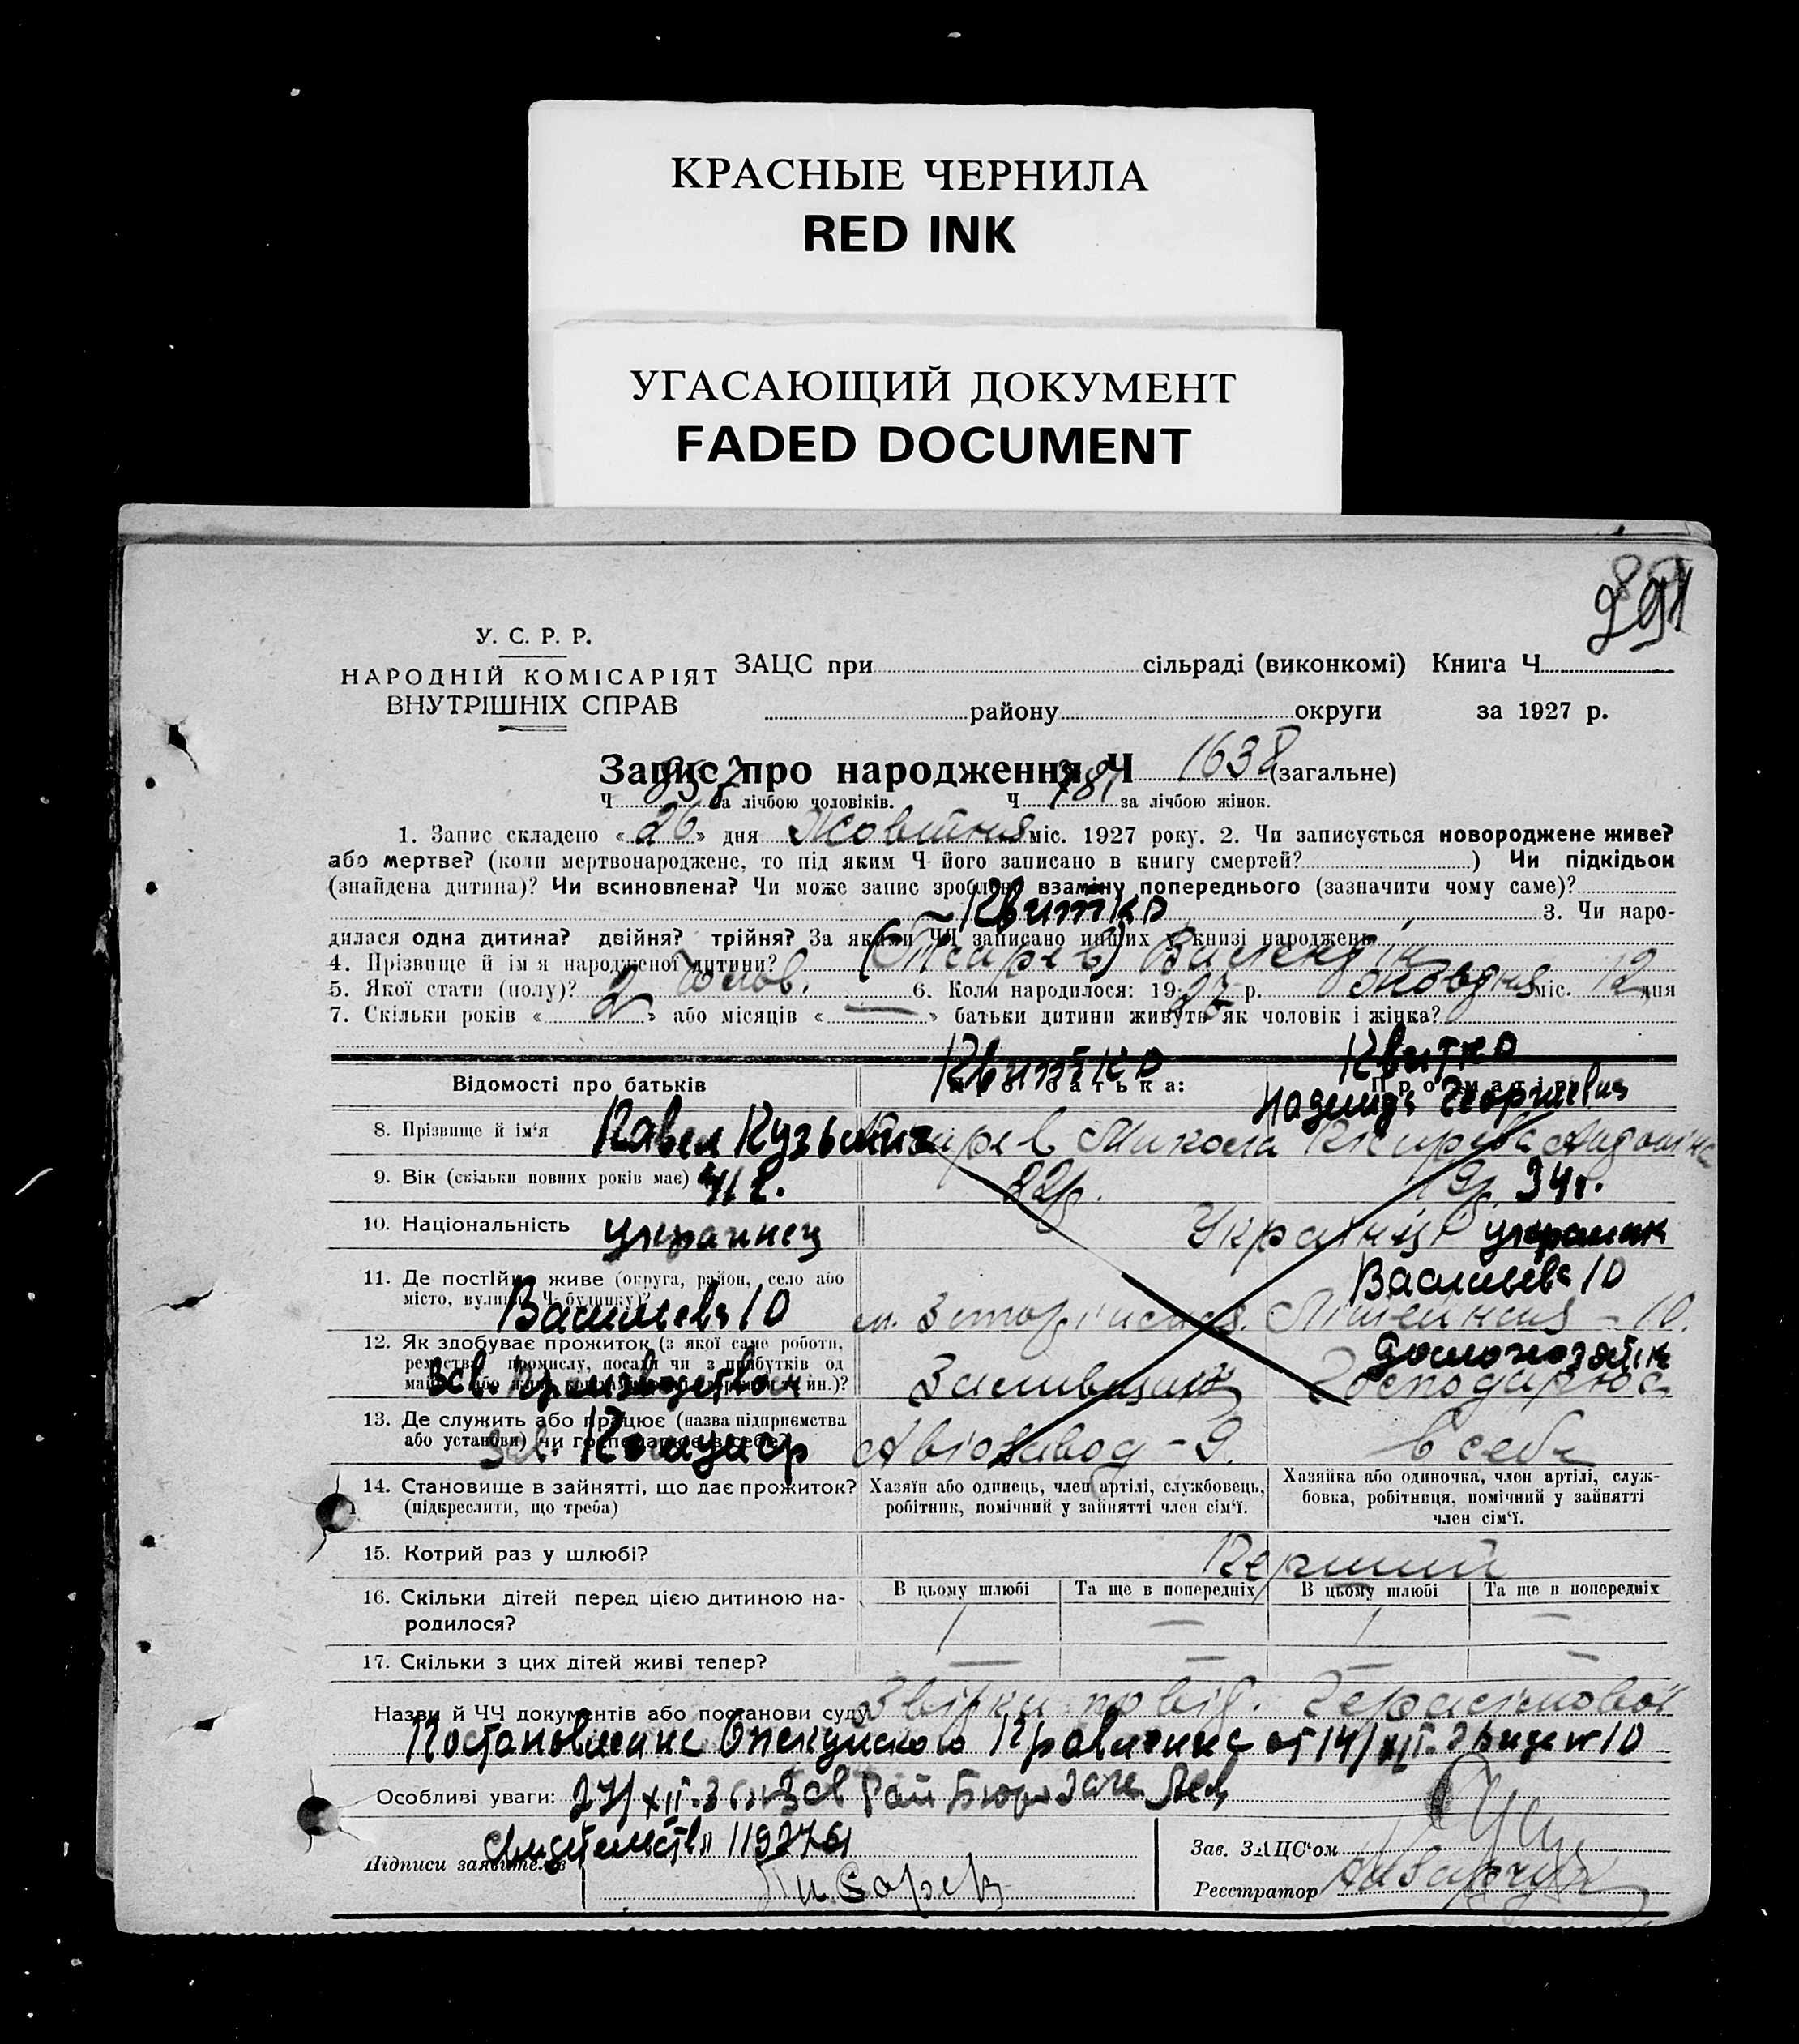 КРАСНЫЕ ЧЕРНИЛА
RED INK
УГАСАЮЩИЙ ДОКУМЕНТ
FADED DOCUMENT
291
У. С. Р. Р.
НАРОДНІЙ КОМІСАРІЯТ
ВНУТРІШНІХ СПРАВ
ЗАЦС при сільраді (виконкомі) Книга Ч
району округи за 1927 р.
Запис про народження Ч 1638 (загальне)
Ч 852 за лічбою чоловіків. Ч 781 за лічбою жінок.
1. Запис складено « 26 » дня Жовтня міс. 1927 року. 2. Чи записується новороджене живе?
або мертве? (коли мертвонароджене, то під яким Ч його записано в книгу смертей? ) Чи підкідьок
(знайдена дитина)? Чи всиновлена? Чи може запис зроблено взаміну попереднього (зазначити чому саме)?
Квитко
3. Чи наро-
дилася одна дитина? двійня? трійня? За якими ЧЧ записано инших у книзі народжень
4. Прізвище й ім'я народженої дитини? Валентін
5. Якої стати (полу)? Чолов. 6. Коли народилося: 1927 р. Жовтня міс. 12 дня
7. Скільки років « 2 » або місяців « — » батьки дитини живуть як чоловік і жінка?
Квитко Квитко
Відомості про батьків Про батька: Про матір:
Надежда Георгиевна
8. Прізвище й ім'я Павел Кузьмич Микола
9. Вік (скільки повних років має) 41 г. 22р. 19р. 34г.
10. Національність украинец Українці
11. Де постійно живе (округа, район, село або
місто, вулиця, Ч будинку)?
Васильева 10 Васильева 10
12. Як здобуває прожиток (з якої саме роботи,
ремества, промислу, посади чи з прибутків од
домохозяйк
13. Де служить або працює (назва підприємства
або установи) чи господарює в себе?
Авіозавод - 9. в себе
14. Становище в зайнятті, що дає прожиток?
(підкреслити, що треба)
Хазяїн або одинець, член артілі, службовець,
робітник, помічний у зайнятті член сім'ї.
Хазяйка або одиночка, член артілі, служ-
бовка, робітниця, помічний у зайнятті
член сім'ї.
15. Котрий раз у шлюбі? Перший
В цьому шлюбі Та ще в попередніх В цьому шлюбі Та ще в попередніх
16. Скільки дітей перед цією дитиною на-
родилося?
1 — 1 —
17. Скільки з цих дітей живі тепер? — — — —
Назви й ЧЧ документів або постанови суду
Постановление Опекунского Правления от 14/XII
Особливі уваги: 27/XII
свидетельство 119276
Підписи заявителів
Зав. ЗАЦС'ом
Реєстратор